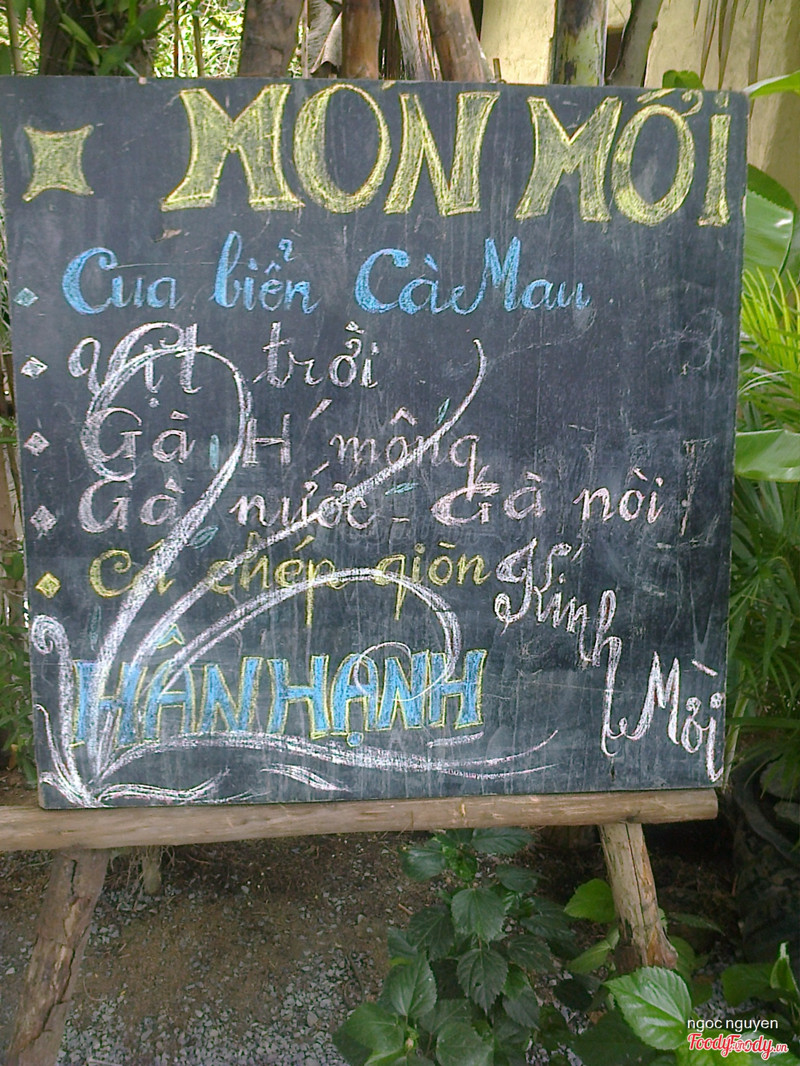 MÓN MỚI
Cua biển Cà Mau
Vịt trời
Gà H'mông
Gà nước - Gà nòi !
Cá chép giòn
Kính Mời
HÂN HẠNH
ngoc nguyen
FoodyFoody.vn